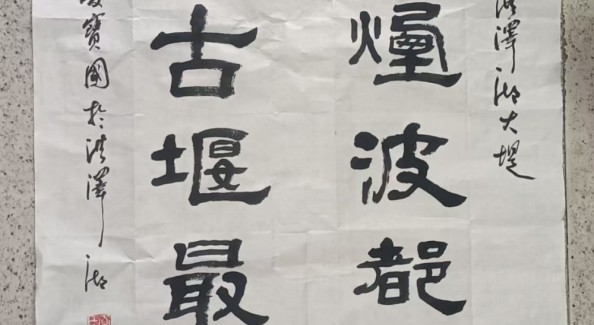 洪澤湖大堤
煙波都
古堰最
寶國於洪澤湖